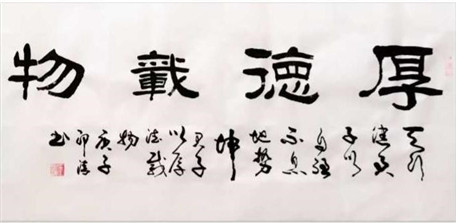 厚德載物
天行
健君
子以
自強
不息
地勢
坤
君子
以厚
德載
物
庚子
书